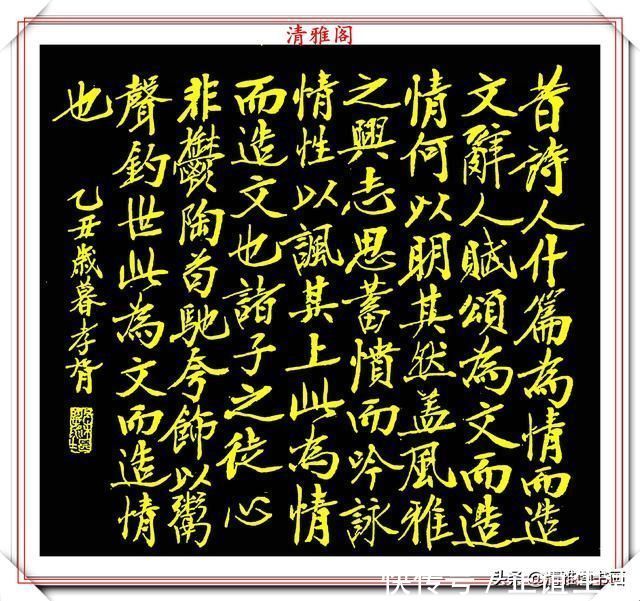 清雅阁
昔詩人什篇為情而造
文辭人賦頌為文而造
情何以明其然盖風雅
之興志思蓄憤而吟詠
情性以諷其上此為情
而造文也諸子之徒心
非鬱陶苟馳夸飾以鬻
聲釣世此為文而造情
也
乙丑歲暮孝胥
头条@清雅阁书画
快传号 /